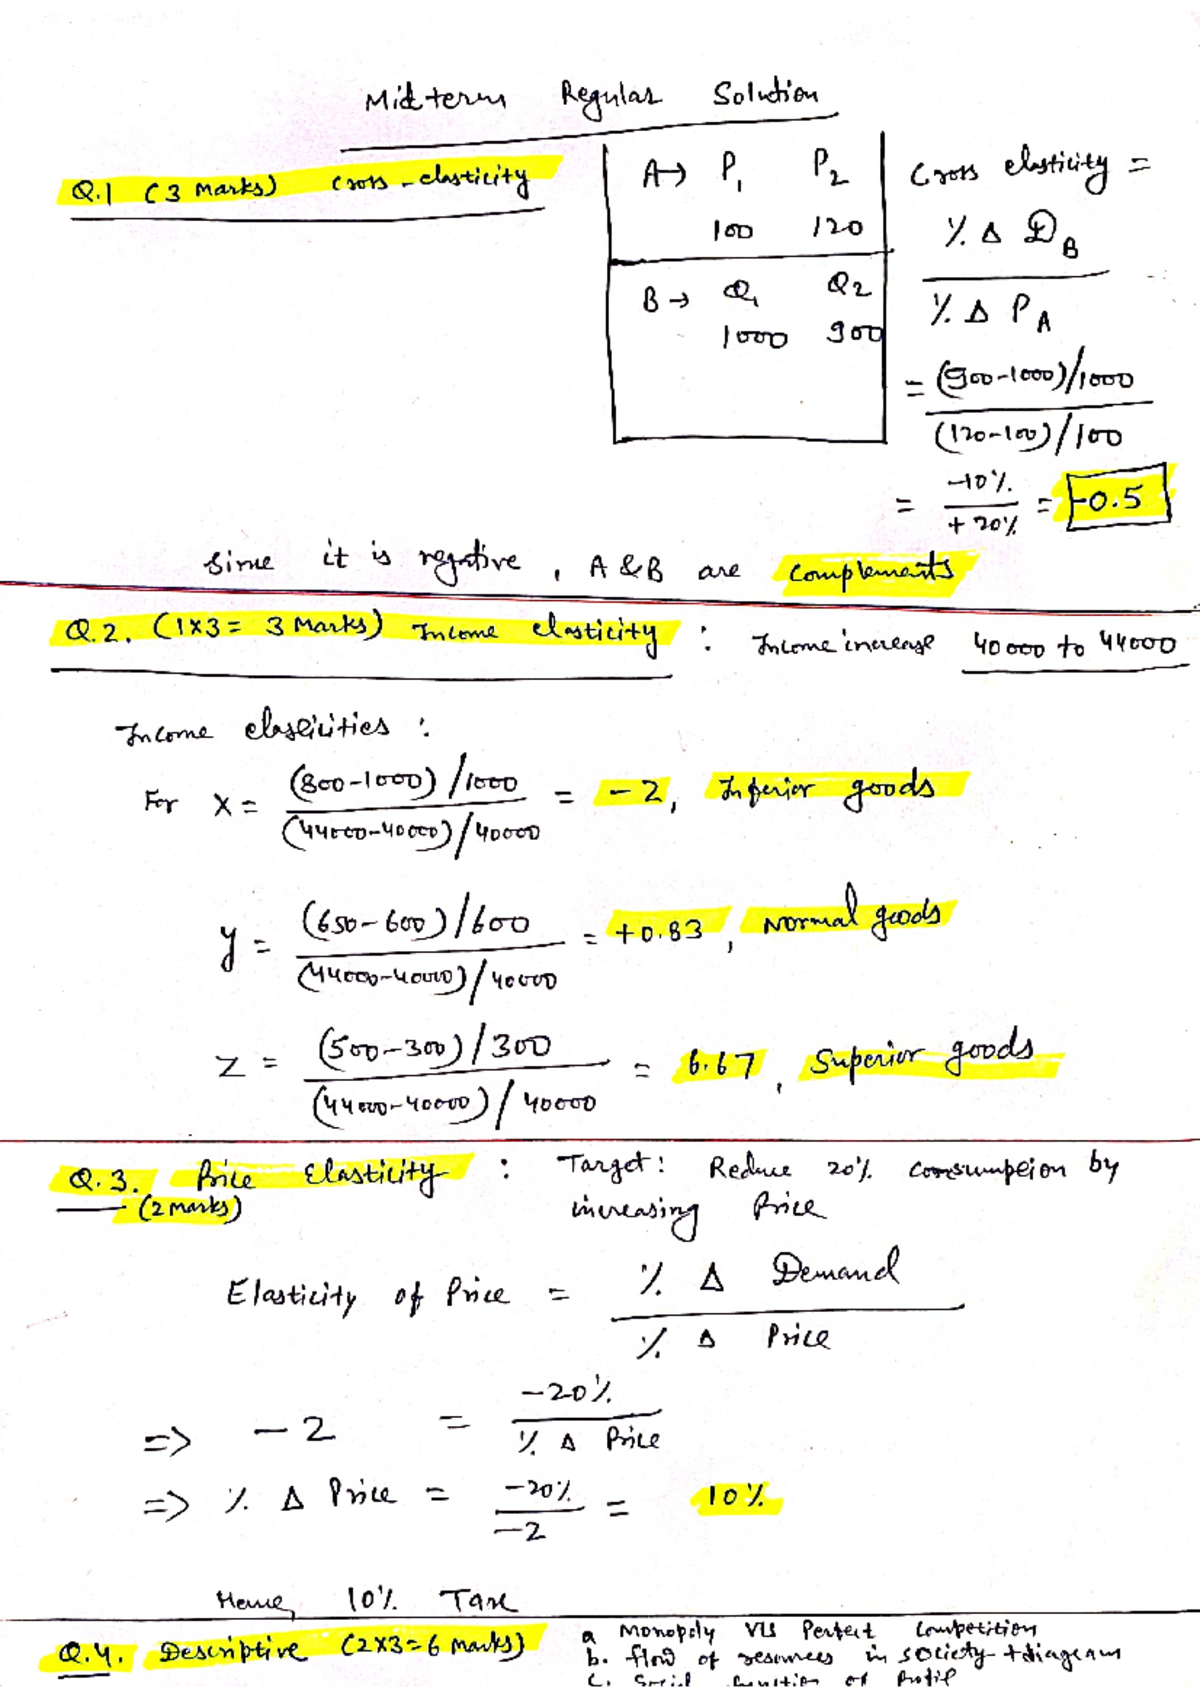 Midterm Regular Solution
Q.1 (3 Marks) Cross-elasticity
A→ P₁ P₂
100 120
B→ Q₁ Q₂
1000 900
Cross elasticity =
% Δ D_B
% Δ P_A
= (900-1000)/1000
(120-100)/100
= -10% / +20% = -0.5
Since it is negative, A & B are Complements
Q.2. (1x3 = 3 Marks) Income elasticity : Income increase 40000 to 44000
Income elasticities :
For X = (800-1000)/1000 = -2, Inferior goods
(44000-40000)/40000
y = (650-600)/600 = +0.83, Normal goods
(44000-40000)/40000
Z = (500-300)/300 = 6.67, Superior goods
(44000-40000)/40000
Q.3. Price Elasticity : Target: Reduce 20% consumption by
(2 marks) increasing Price
Elasticity of Price = % Δ Demand
% Δ Price
=> -2 = -20%
% Δ Price
=> % Δ Price = -20% = 10%
-2
Hence, 10% Tax
Q.4. Descriptive (2x3=6 Marks) a Monopoly V/s Perfect Competition
b. flow of resources in society + diagram
c. Social function of Profit